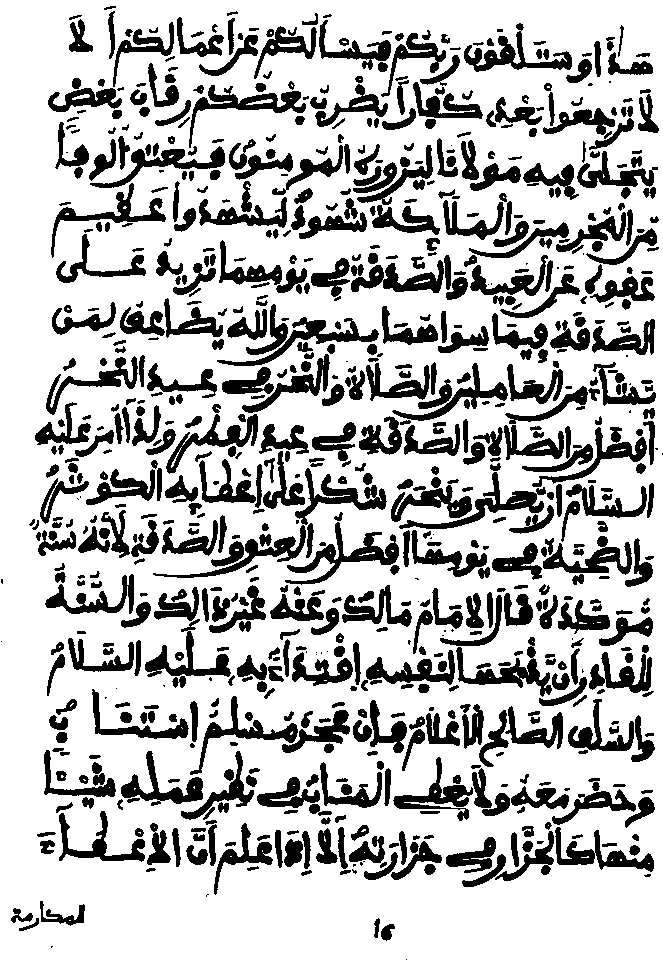 هذا وستلقون ربكم فيسألكم عن أعمالكم ألا
لا ترجعوا بعدي كفارا يضرب بعضكم رقاب بعض
يتجلى فيه مولانا ليزوره المومنون فيعتق ألوفا
من المجرمين والملائكة شهود ليشهدوا عظيم
عفوه عن العبيد والصدقة في يومهما تزيد على
الصدقة فيما سواهما بسبعين والله يضاعف لمن
يشاء من العاملين والصلاة والنحر في عيد النحر
أفضل من الصلاة والصدقة في عيد الفطر ولذا أمر عليه
السلام أن يصلي وينحر شكرا على إعطائه الكوثر
والضحية في يومها أفضل من العتق والصدقة لأنه سنة
مؤكدة قال الإمام مالك وعنه غير ذالك والسنة
للقادر أن يذبحها لنفسه اقتداء به عليه السلام
والسلف الصالح الأعلام فإن عجز مسلم استناب
وحضر معه ولا يعطي المناب في نظير عمله شيئا
منها كالجزار في جزارته إلا إذا علم أن الإعطاء
المكارمة
16